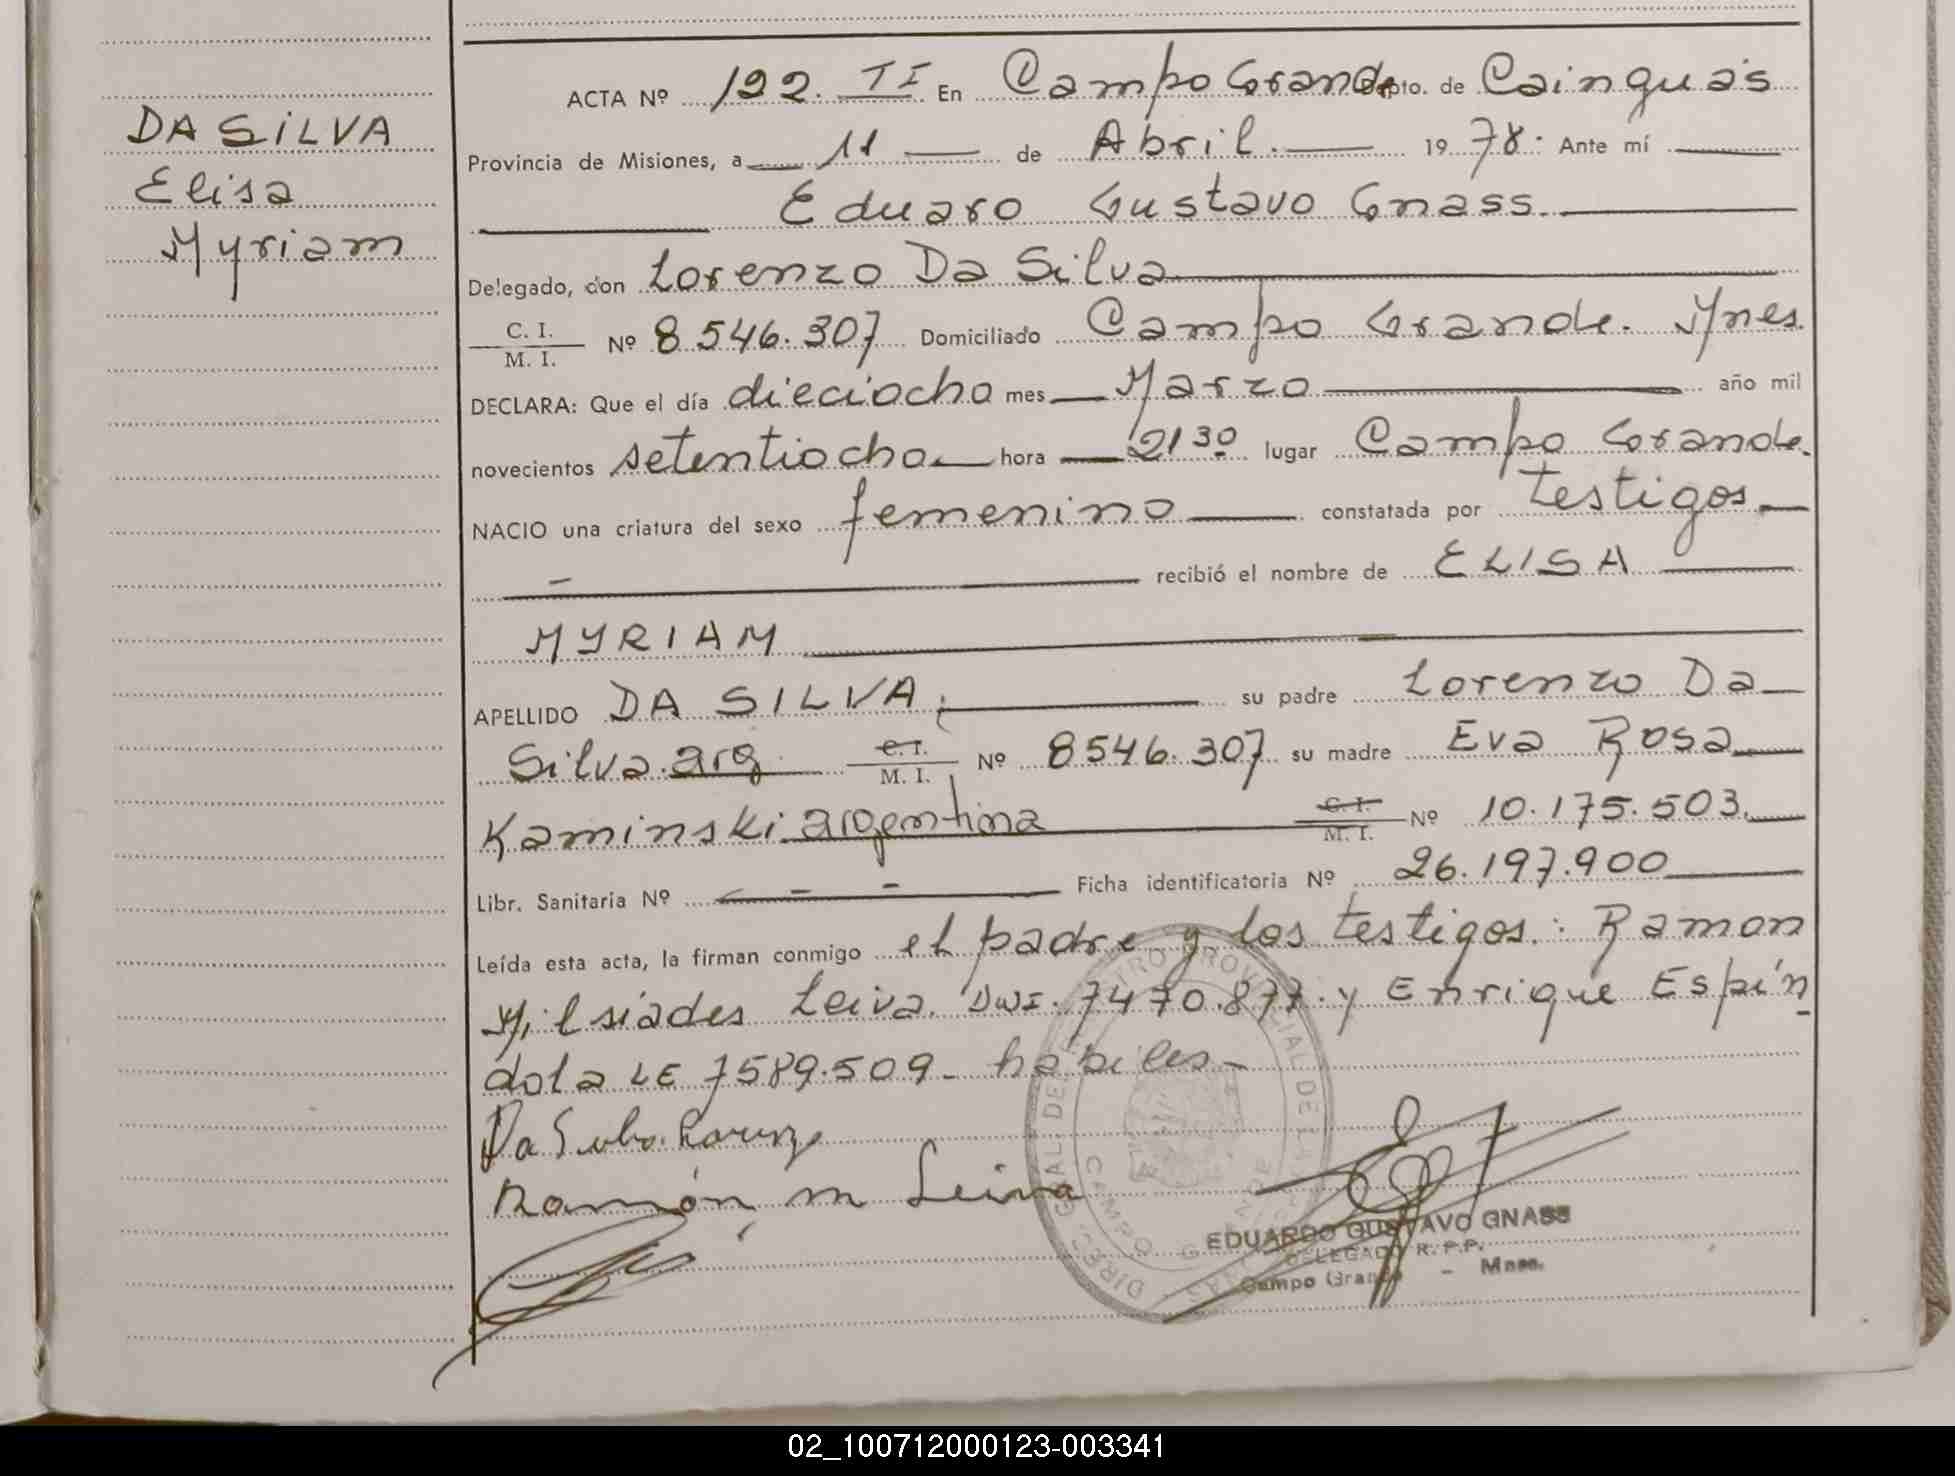 DA SILVA
Elisa
Myriam
ACTA Nº 192. TI En Campo Grande Dpto. de Cainguás
Provincia de Misiones, a 11 de Abril. 19 78. Ante mí
Eduaro Gustavo Gnass.
Delegado, don Lorenzo Da Silva
C. I. / M. I. Nº 8546.307 Domiciliado Campo Grande. Mnes.
DECLARA: Que el día dieciocho mes Marzo año mil
novecientos setentiocho hora 21 30 lugar Campo Grande.
NACIO una criatura del sexo femenino constatada por testigos
recibió el nombre de ELISA
MYRIAM
APELLIDO DA SILVA; su padre Lorenzo Da
Silva. arg. C. I. / M. I. Nº 8546.307 su madre Eva Rosa
Kaminski argentina C. I. / M. I. Nº 10.175.503.
Libr. Sanitaria Nº - - Ficha identificatoria Nº 26.197.900
Leída esta acta, la firman conmigo el padre y los testigos: Ramon
Milsiades Leiva. DNI. 7470.877. y Enrique Espín
dola LE 7589.509 - habiles -
Da Silva Lorenzo
Ramón M Leiva
DIREC. GRAL. DEL REGISTRO PROVINCIAL DE LAS PERSONAS
CAMPO GRANDE
EDUARDO GUSTAVO GNASS
DELEGADO R. P. P.
Campo Grande - Mnes.
02_100712000123-003341